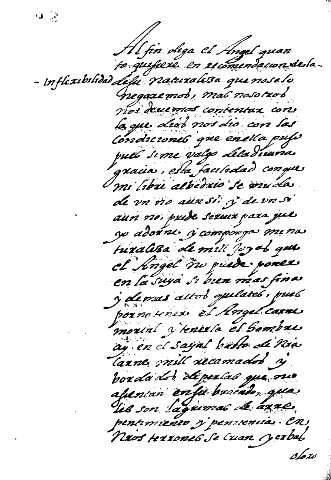 Al fin diga el Angel quan
to quisiere en recomendacion de la
- Inflexibilidad de su Naturaleza que no se lo
negaremos, mas nosotros
nos devemos contentar con
la que dios nos dio con las
condiciones que en ella puso
pues si me valgo de la divina
gracia, esta facilidad con que
mi libre albedrio se muda
de un no a un si, y de un si
a un no, puede servir para que
yo adorne y componga mi na
turaleza de mill joyas que
el Angel no puede poner
en la suya si bien mas fina
y de mas altos quilates, pues
por no tener el Angel carne
mortal y tenerla el hombre
ay en el sayal basto de
carne mill recamados y
bordados de perlas que no
asientan en su brocado, que
les son lagrimas de arre
pentimiento y penitencia. En
terrones se crian yerbas
oloro